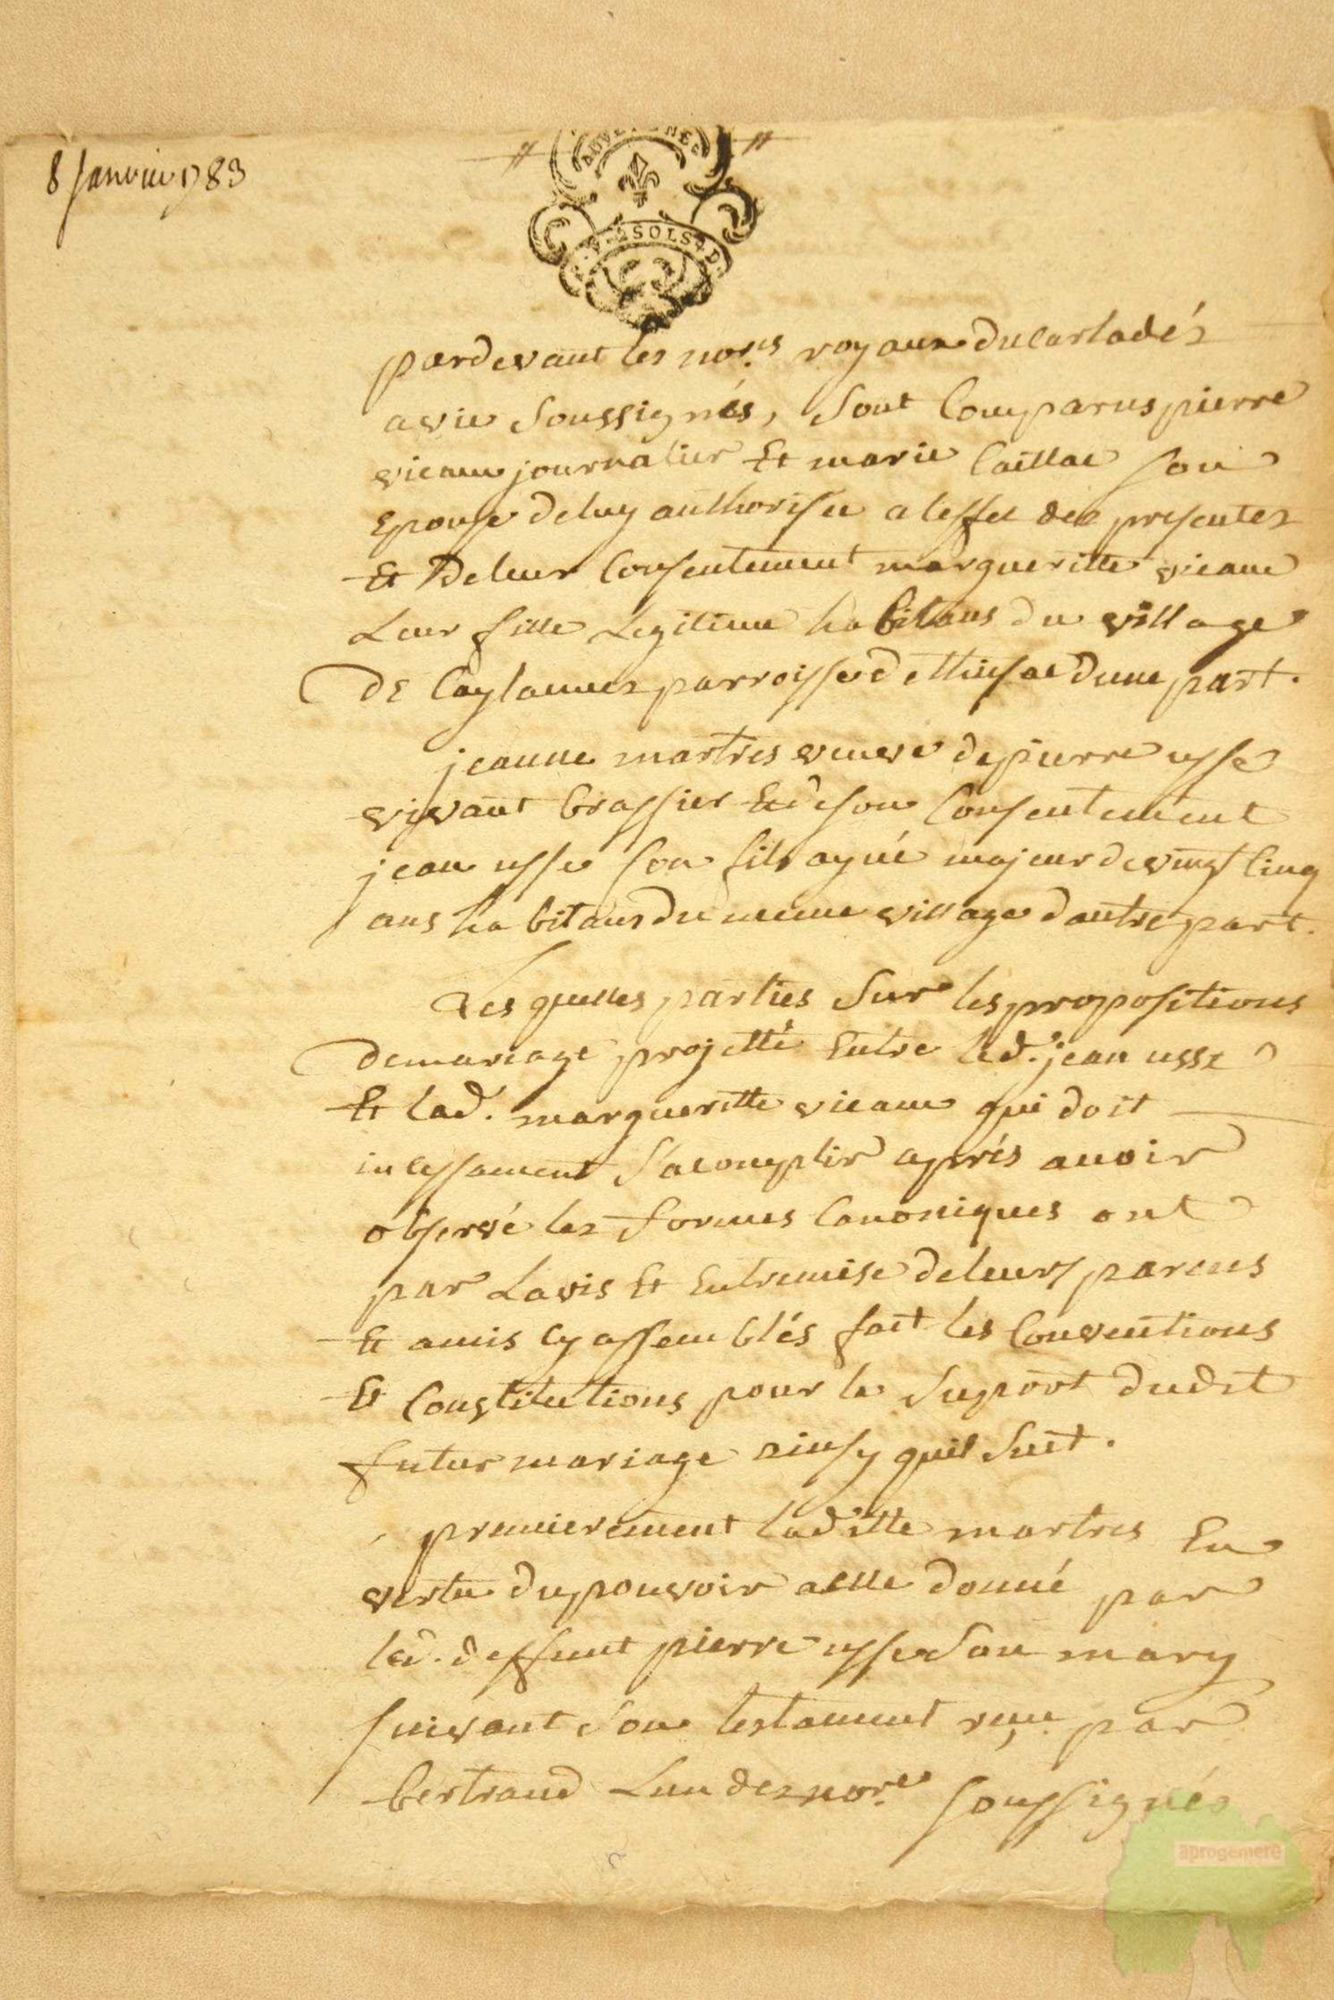 8 janvier 1783
AUVERGNE
SOLS
pardevant les no.res royaux du Carladés
a vic soussignés, sont Comparus pierre
vicam journalier Et marie Caillac son
Epouse de luy authorisée a leffet des presentes
Et de leur Consentement margueritte vicam
Leur fille Legitime habitans du village
de Caylanes parroisse de thiesac dune part.
jeanne martres veuve de pierre usse
vivant brassier Et de son Consentement
jean usse son fils ayné majeur de vingt Cinq
ans habitans du meme village dautre part.
Les quelles parties sur les propositions
de mariage projetté Entre led. jean usse
Et lad. margueritte vicam qui doit
incessament s'acomplir après avoir
observé les formes Canoniques ont
par Lavis Et Entremise de leurs parens
Et amis Cy assemblés fait les Conventions
Et Constitutions pour le suport dudit
futur mariage ainsy quil suit.
premierement laditte martres En
vertu du pouvoir a elle donné par
led. deffunt pierre usse son mary
suivant son testament reçu par
bertrand Lun des no.res soussignés
aprogemere